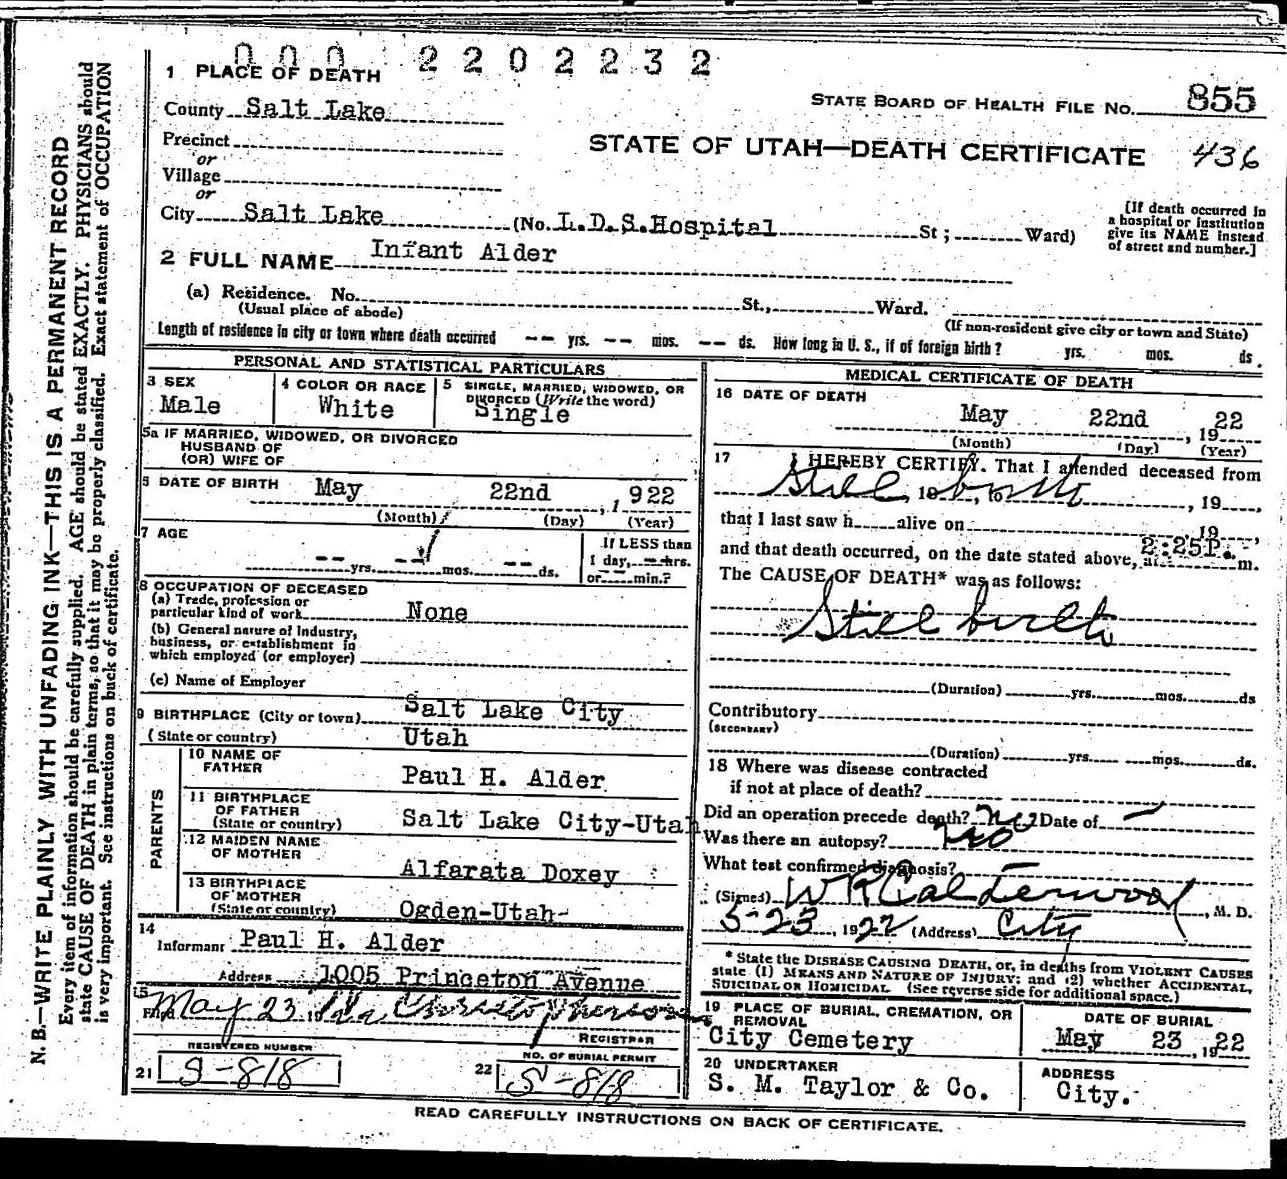 000 2202232
1 PLACE OF DEATH
STATE BOARD OF HEALTH FILE No. 855
County Salt Lake
STATE OF UTAH—DEATH CERTIFICATE 436
Precinct
or
Village
or
City Salt Lake (No. L.D.S.Hospital St; Ward)
[If death occurred in
a hospital or institution
give its NAME instead
of street and number.]
2 FULL NAME Infant Alder
(a) Residence. No. St., Ward.
(Usual place of abode)
(If non-resident give city or town and State)
Length of residence in city or town where death occurred -- yrs. -- mos. -- ds. How long in U. S., if of foreign birth? yrs. mos. ds.
PERSONAL AND STATISTICAL PARTICULARS
3 SEX
Male
4 COLOR OR RACE
White
5 SINGLE, MARRIED, WIDOWED, OR
DIVORCED (Write the word)
Single
5a IF MARRIED, WIDOWED, OR DIVORCED
HUSBAND OF
(OR) WIFE OF
6 DATE OF BIRTH May 22nd , 1922
(Month) (Day) (Year)
7 AGE
-- yrs. -- mos. -- ds.
If LESS than
1 day, -- hrs.
or -- min.?
8 OCCUPATION OF DECEASED
(a) Trade, profession or
particular kind of work None
(b) General nature of Industry,
business, or establishment in
which employed (or employer)
(c) Name of Employer
9 BIRTHPLACE (City or town) Salt Lake City
(State or country) Utah
PARENTS
10 NAME OF
FATHER Paul H. Alder
11 BIRTHPLACE
OF FATHER
(State or country) Salt Lake City-Utah
12 MAIDEN NAME
OF MOTHER Alfarata Doxey
13 BIRTHPLACE
OF MOTHER
(State or country) Ogden-Utah-
14
Informant Paul H. Alder
Address 1005 Princeton Avenue
15
Filed May 23 19 Christopherson
REGISTRAR
REGISTERED NUMBER
21 S-818
NO. OF BURIAL PERMIT
22 S-818
MEDICAL CERTIFICATE OF DEATH
16 DATE OF DEATH
May 22nd , 1922
(Month) (Day) (Year)
17 I HEREBY CERTIFY. That I attended deceased from
Still birth , 19 , to , 19 ,
that I last saw h alive on 19 ,
and that death occurred, on the date stated above, at 2:25P. m.
The CAUSE OF DEATH* was as follows:
Still birth
(Duration) yrs. mos. ds
Contributory
(SECONDARY)
(Duration) yrs mos. ds.
18 Where was disease contracted
if not at place of death?
Did an operation precede death? no? Date of —
Was there an autopsy? no
What test confirmed diagnosis?
(Signed) W R Calderwood , M. D.
5-23 , 1922 (Address) City
* State the DISEASE CAUSING DEATH, or, in deaths from VIOLENT CAUSES
state (1) MEANS AND NATURE OF INJURY; and (2) whether ACCIDENTAL,
SUICIDAL OR HOMICIDAL. (See reverse side for additional space.)
19 PLACE OF BURIAL, CREMATION, OR
REMOVAL
City Cemetery
DATE OF BURIAL
May 23 , 1922
20 UNDERTAKER
S. M. Taylor & Co.
ADDRESS
City.
READ CAREFULLY INSTRUCTIONS ON BACK OF CERTIFICATE.
N. B.—WRITE PLAINLY WITH UNFADING INK—THIS IS A PERMANENT RECORD
Every item of information should be carefully supplied. AGE should be stated EXACTLY. PHYSICIANS should
state CAUSE OF DEATH in plain terms, so that it may be properly classified. Exact statement of OCCUPATION
is very important. See instructions on back of certificate.